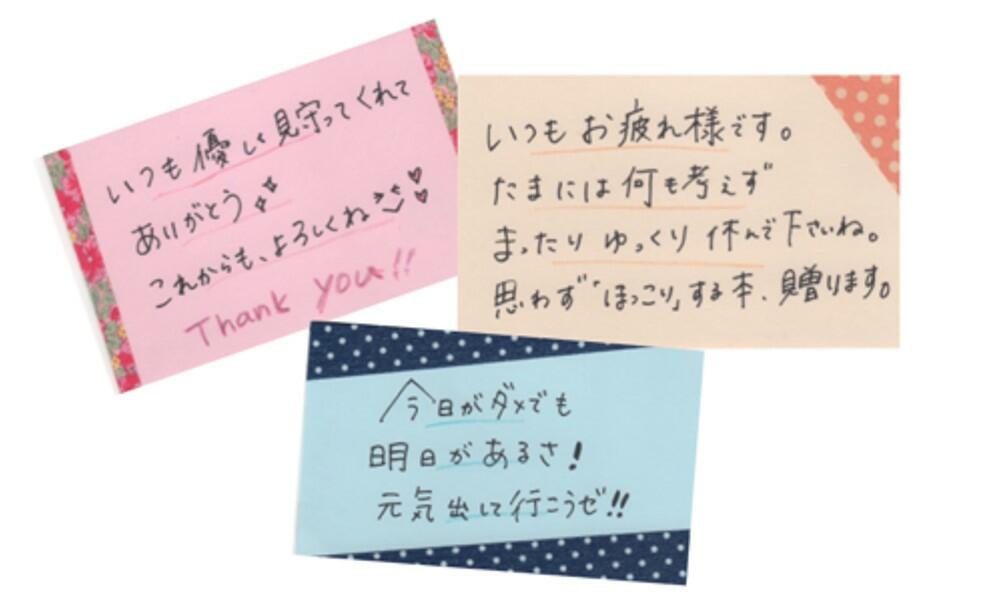 いつも優しく見守ってくれて
ありがとう
これからも、よろしくね
Thank you!!
いつもお疲れ様です。
たまには何も考えず
まったりゆっくり休んで下さいね。
思わず「ほっこり」する本、贈ります。
今日がダメでも
明日があるさ!
元気出して行こうゼ!!